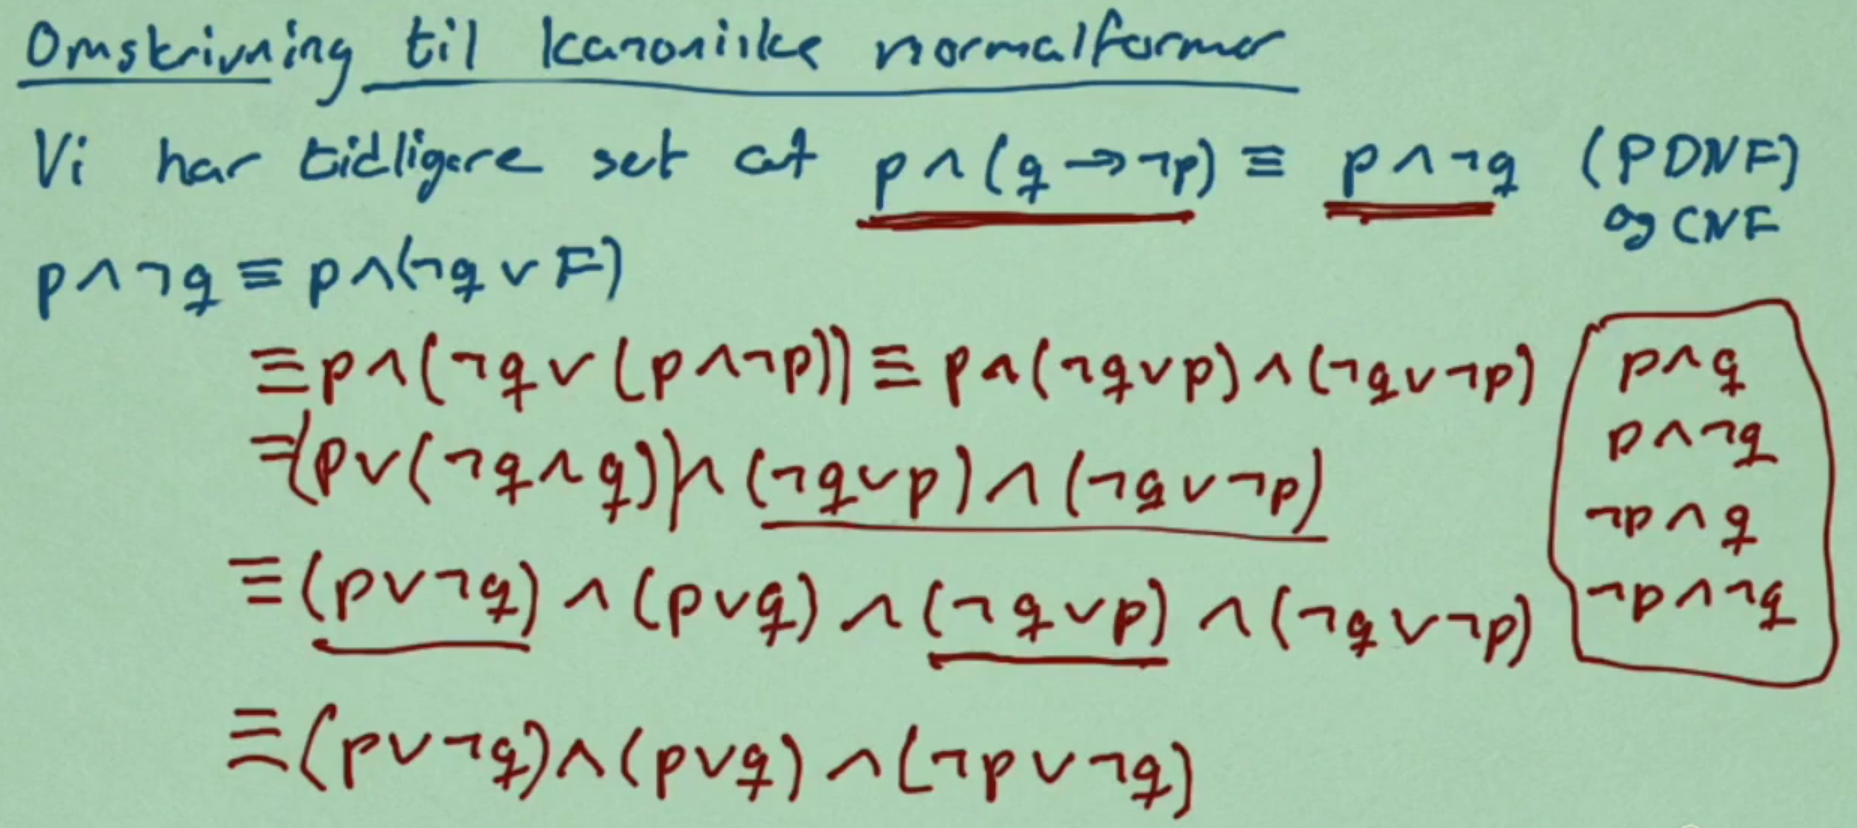 Omskrivning til kanoniske normalformer
Vi har tidligere set at p∧(q→¬p) ≡ p∧¬q (PDNF)
og CNF
p∧¬q ≡ p∧(¬q∨F)
≡ p∧(¬q∨(p∧¬p)) ≡ p∧(¬q∨p)∧(¬q∨¬p)
≡ (p∨(¬q∧q))∧(¬q∨p)∧(¬q∨¬p)
≡ (p∨¬q)∧(p∨q)∧(¬q∨p)∧(¬q∨¬p)
≡ (p∨¬q)∧(p∨q)∧(¬p∨¬q)
p∧q
p∧¬q
¬p∧q
¬p∧¬q